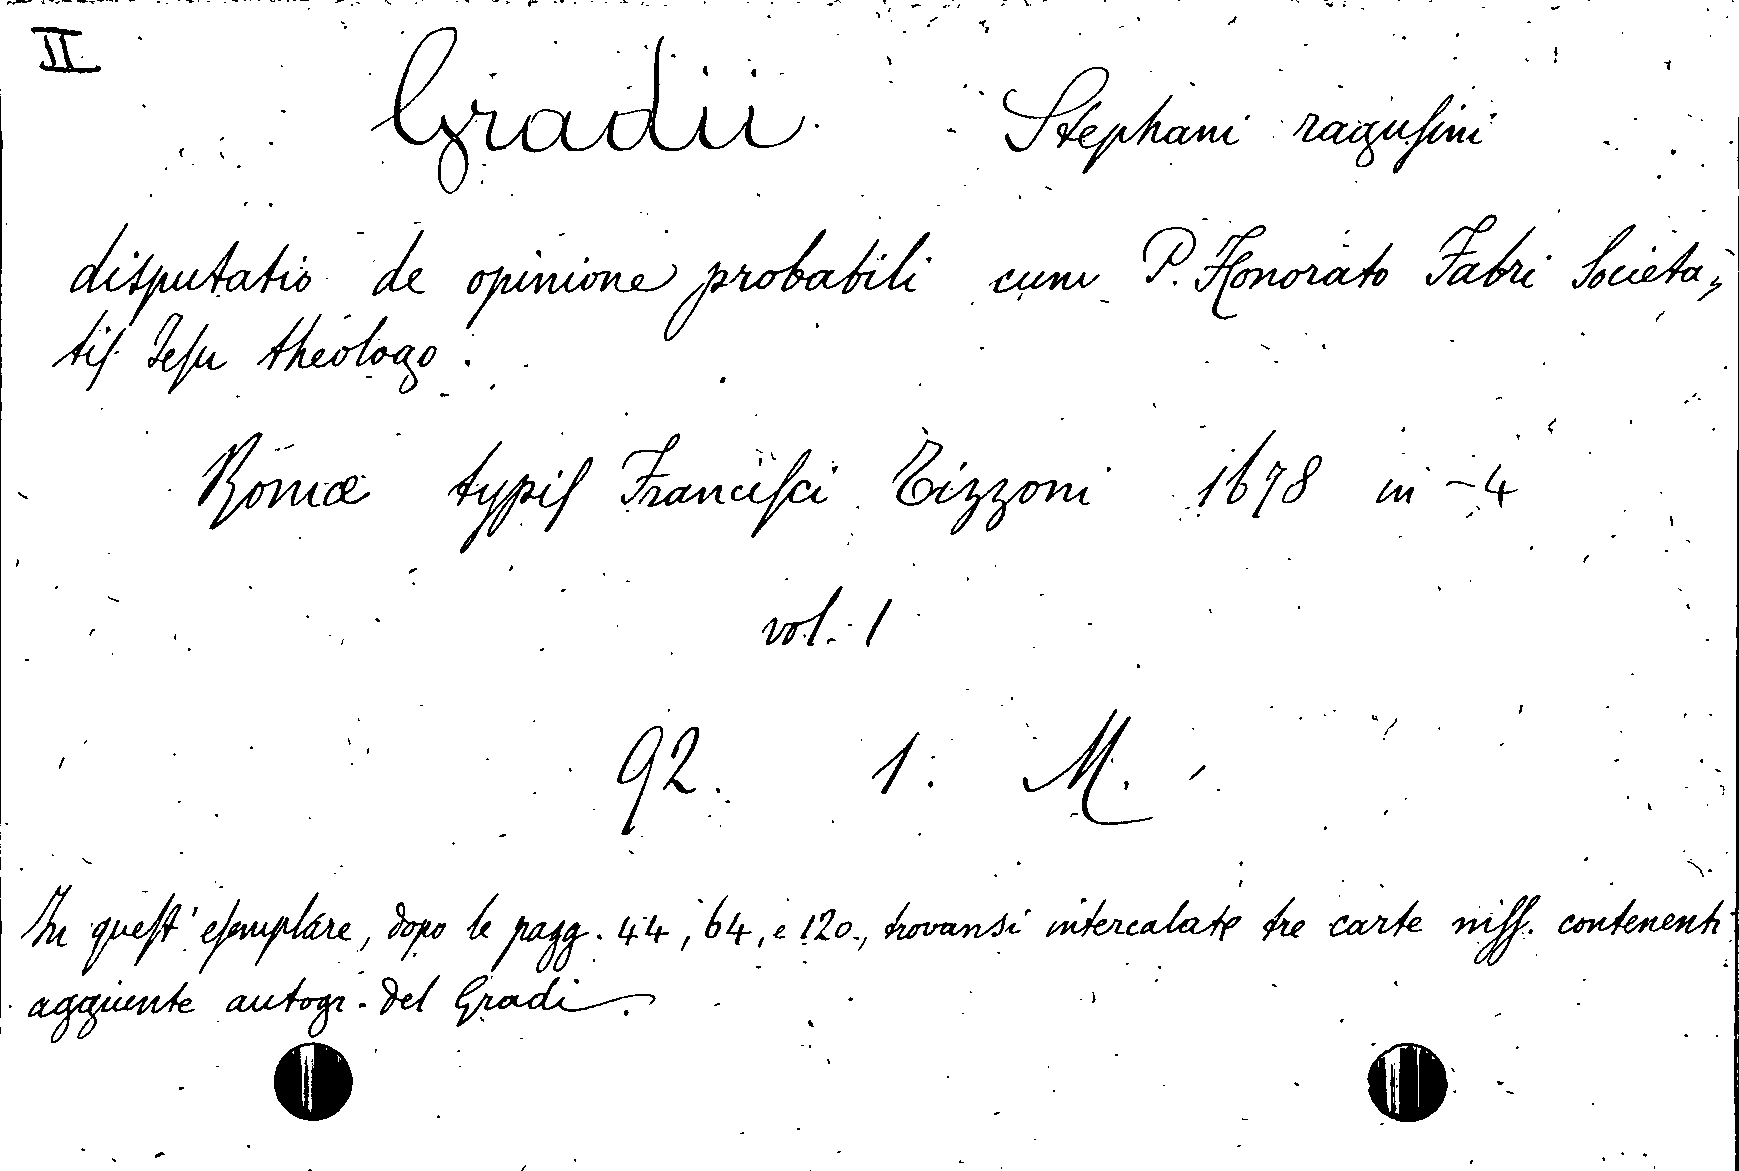 II
Gradii Stephani ragusini
disputatio de opinione probabili cum P. Honorato Fabri Societa-
tis Jesu theologo.
Romæ typis Francisci Tizzoni 1678 in-4
vol. 1
92. 1. M.
In quest' esemplare, dopo le pagg. 44, 64, e 120., trovansi intercalate tre carte mss. contenenti
aggiunte autogr. del Gradi.